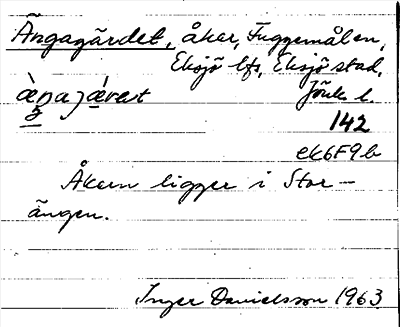 Ängagärdet, åker, Fuggemålen,
Eksjö lfs, Eksjö stad,
Jönk. l.
2
142
ek6F9b
Åkern ligger i Stor-
ängen.
Inger Danielsson 1963